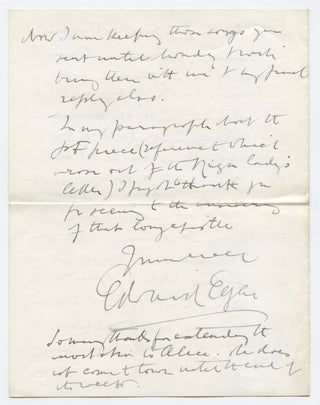 Now I am keeping those songs you
sent until Monday & will
bring them with me & my final
reply also.
In my paragraph about the
piece (reference to which
arose out of the
letter) I forgot to thank you
for seeing to the
of that long epistle
Yours ever
Edward Elgar
So many thanks for extending the
invitation to Alice. She does
not come to town until the end of
the week.